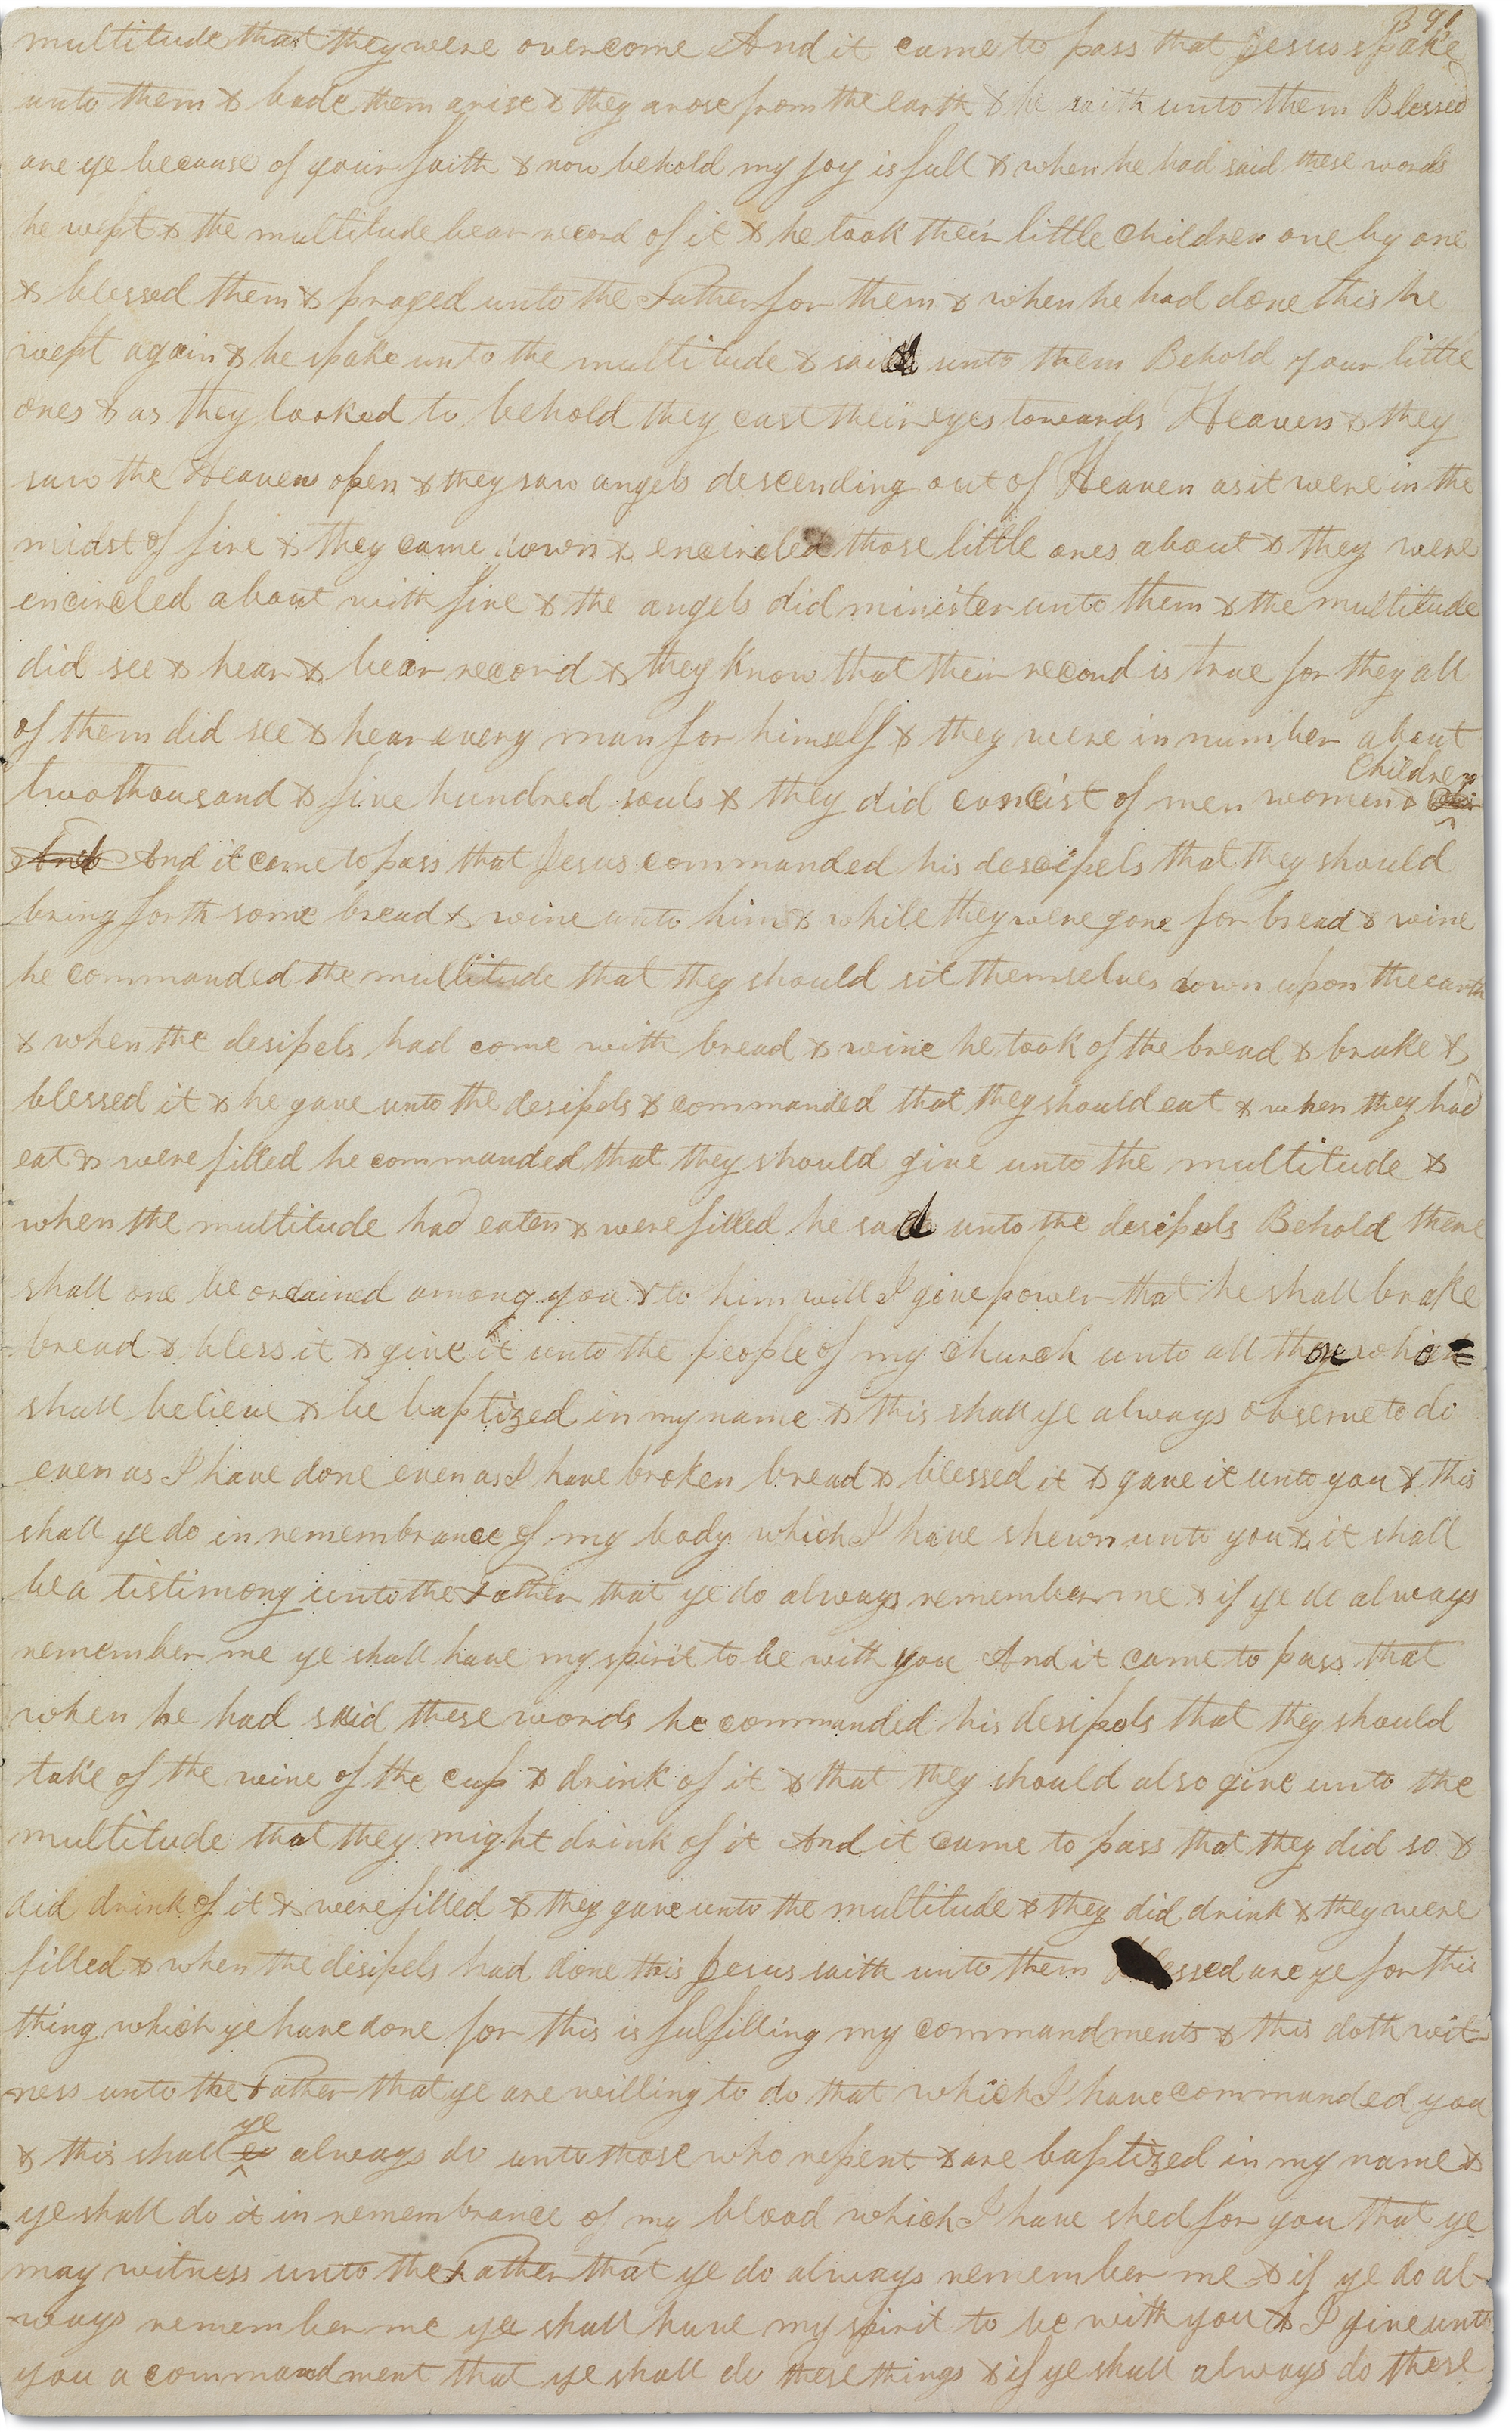 391
multitude that they were overcome And it came to pass that Jesus spake
unto them & bade them arise & they arose from the earth & he saith unto them Blessed
are ye because of your faith & now behold my joy is full & when he had said these words
he wept & the multitude bear record of it & he took their little Children one by one
& blessed them & prayed unto the Father for them & when he had done this he
wept again & he spake unto the multitude & said unto them Behold your little
ones & as they looked to behold they cast their eyes towards Heaven & they
saw the Heavens open & they saw angels descending out of Heaven as it were in the
midst of fire & they came down & encircled those little ones about & they were
encircled about with fire & the angels did minister unto them & the multitude
did see & hear & bear record & they know that their record is true for they all
of them did see & hear every man for himself & they were in number about
two thousand & five hundred souls & they did concist of men women & Children
And And it came to pass that Jesus commanded his descipels that they should
bring forth some bread & wine unto him & while they were gone for bread & wine
he commanded the multitude that they should sit themselves down upon the earth
& when the desipels had come with bread & wine he took of the bread & brake &
blessed it & he gave unto the desipels & commanded that they should eat & when they had
eat & were filled he commanded that they should give unto the multitude &
when the multitude had eaten & were filled he said unto the desipels Behold there
shall one be ordained among you & to him will I give power that he shall brake
bread & bless it & give it unto the people of my church unto all those who
shall believe & be baptized in my name & this shall ye always observe to do
even as I have done even as I have broken bread & blessed it & gave it unto you & this
shall ye do in remembrance of my body which I have shewn unto you & it shall
be a tistimony unto the Father that ye do always remember me & if ye do always
remember me ye shall have my spirit to be with you And it came to pass that
when he had said these words he commanded his desipels that they should
take of the wine of the cup & drink of it & that they should also give unto the
multitude that they might drink of it And it came to pass that they did so &
did drink of it & were filled & they gave unto the multitude & they did drink & they were
filled & when the desipels had done this Jesus saith unto them Blessed are ye for this
thing which ye have done for this is fulfilling my commandments & this doth wit-
ness unto the Father that ye are willing to do that which I have commanded you
& this shall ye always do unto those who repent & are baptized in my name &
ye shall do it in remembrance of my blood which I have shed for you that ye
may witness unto the Father that ye do always remember me & if ye do al-
ways remember me ye shall have my spirit to be with you & I give unto
you a commandment that ye shall do these things & if ye shall always do these